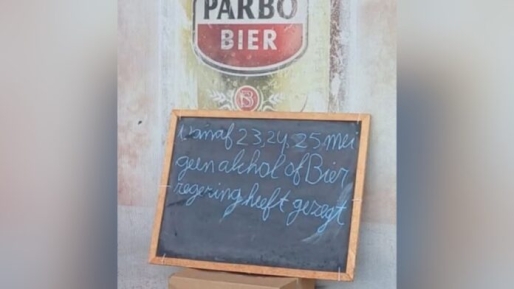 PARBO
BIER
vanaf 23,24, 25, mei
geen alkhol of Bier
regering heeft gezegt